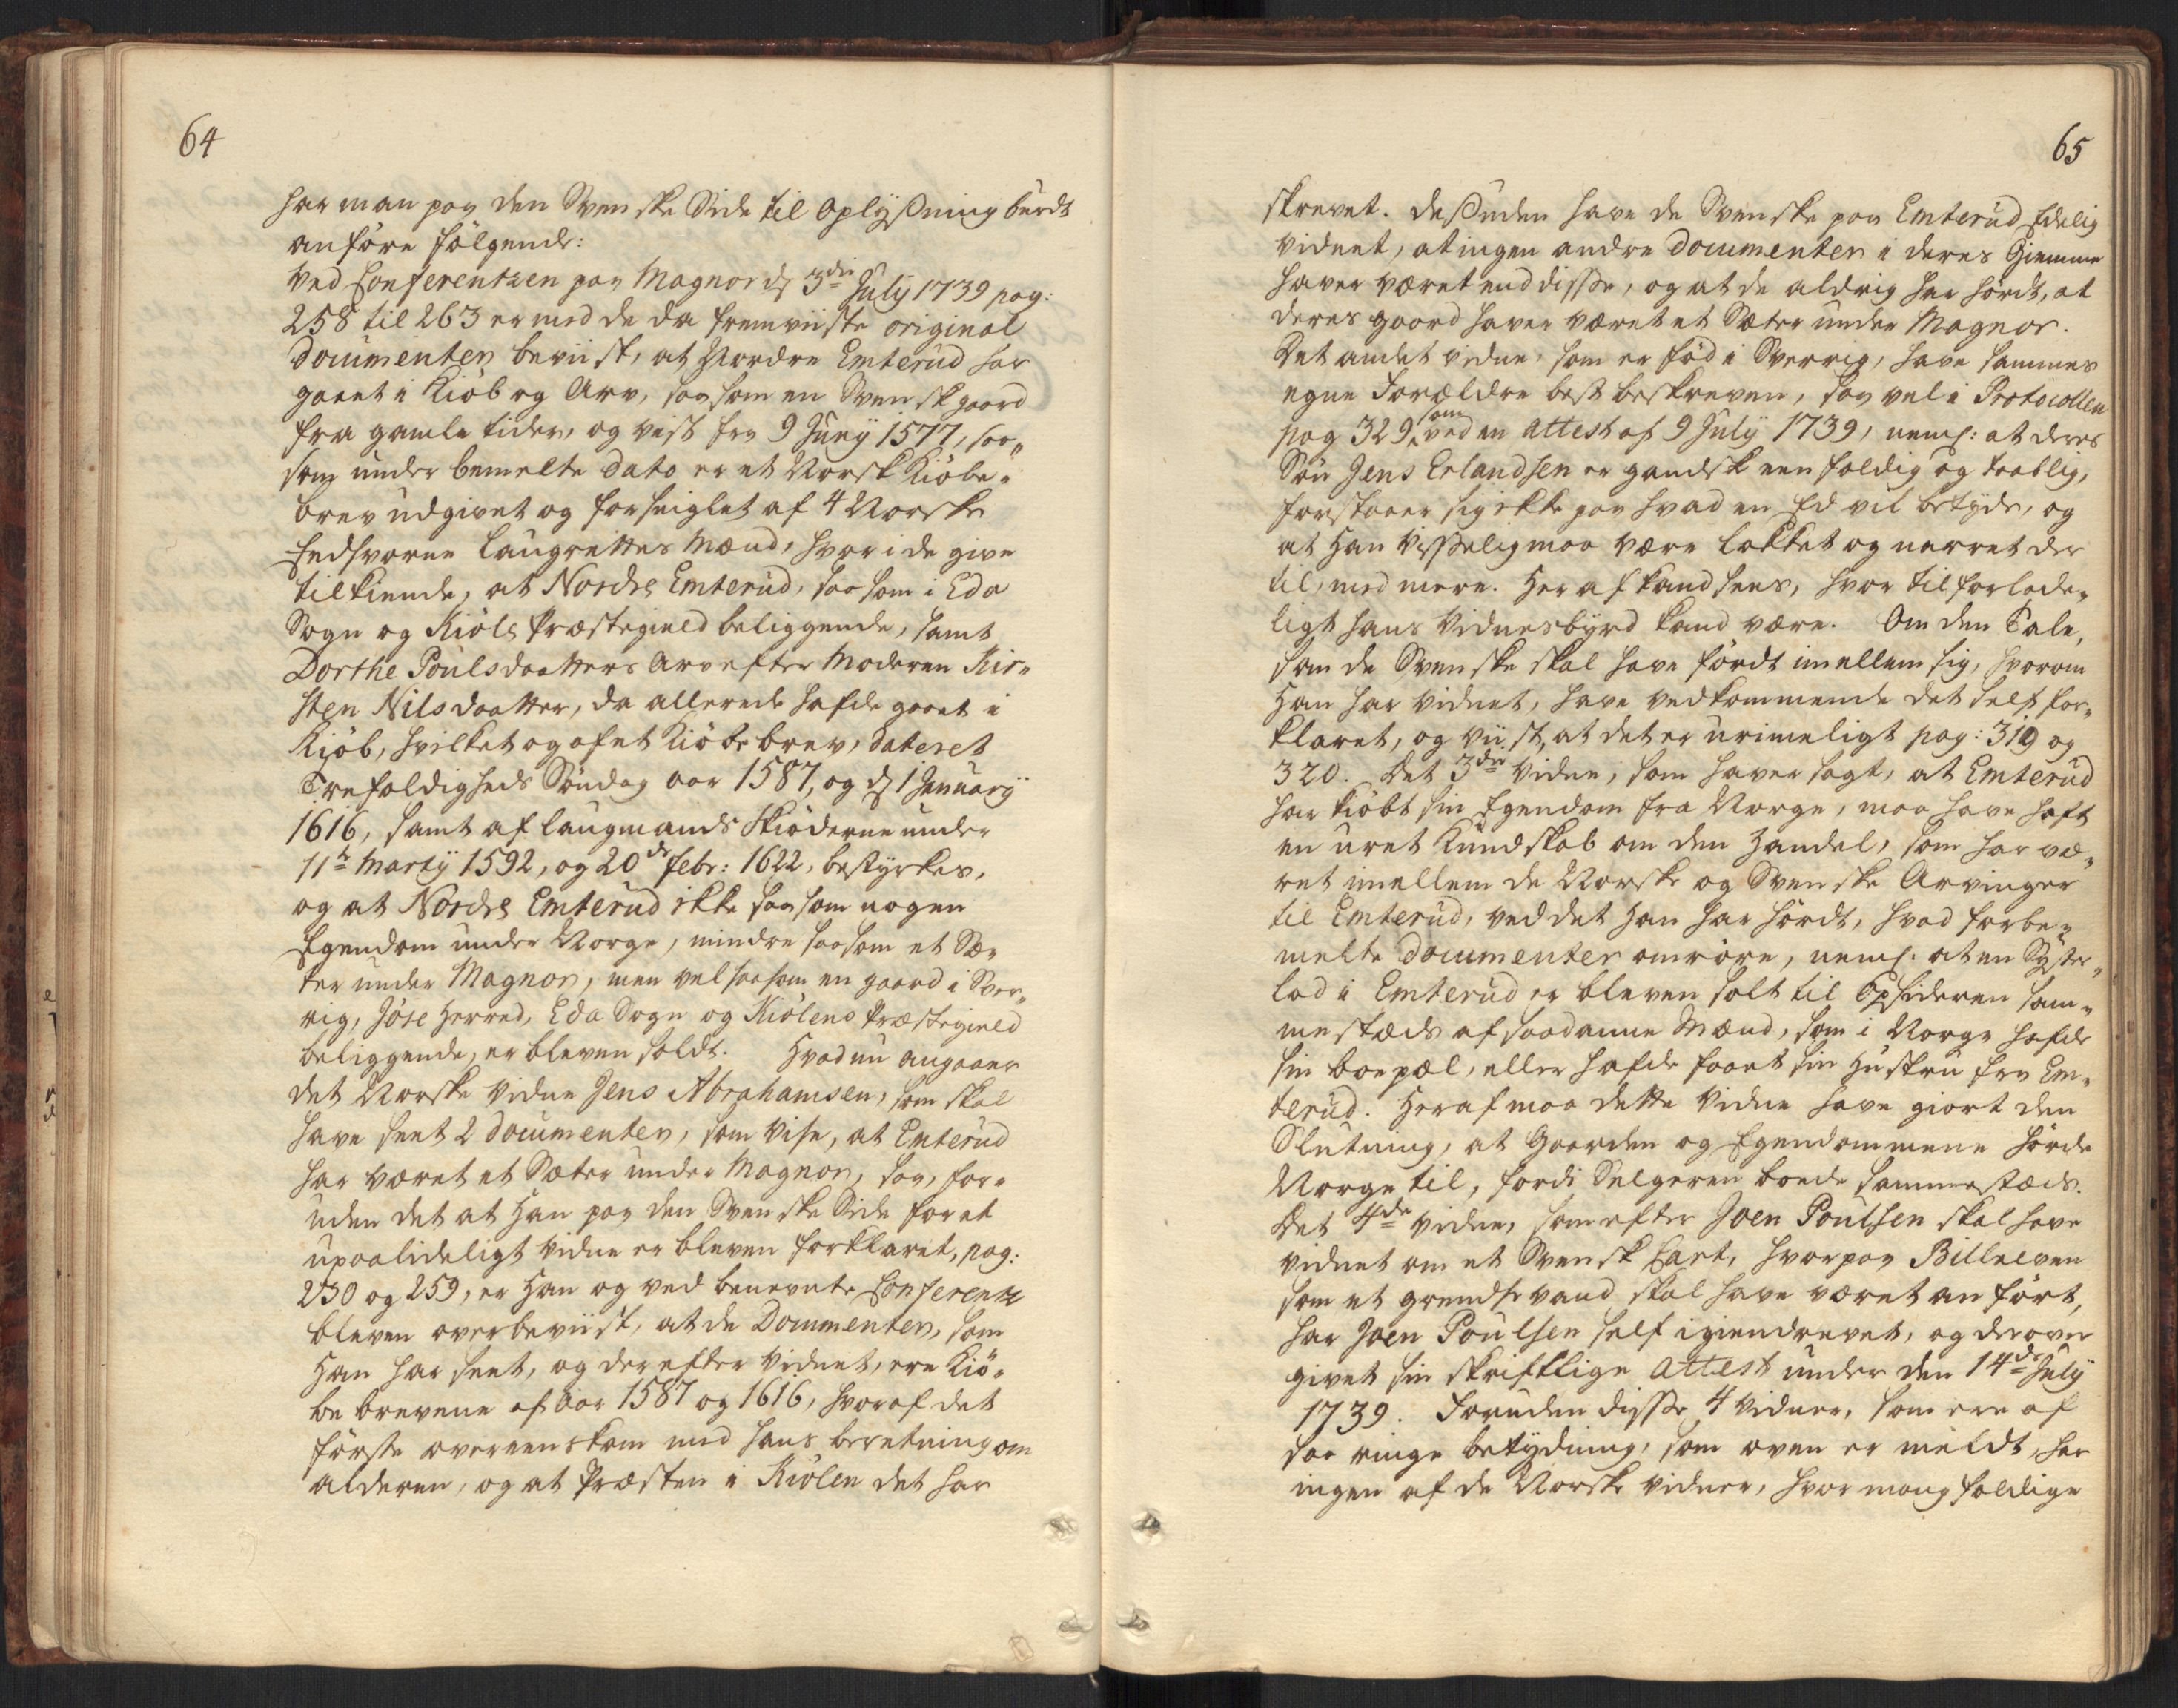 64
har man paa den Svenske Side til Oplysning burdt
anføre følgende:
Ved Conferentzen paa Magnor d 3die July 1739 pag:
258 til 263 er med de da fremviiste original
documenter beviist, at Nordre Emterud har
gaaet i Kiöb og Arv, saasom en Svensk gaard
fra gamle tider, og vist fra 9 Juny 1577, saa„
som under bemelte dato er et Norsk Kiöbe„
brev udgivet og forseiglet af 4 Norske
Eedsvorne Laugrettes Mænd, hvor i de give
tilkiende, at Nordre Emterud, saasom i Eda
Sogn og Kiöls Præstegield beliggende, samt
Dorthe Poulsdaatters Arv efter Moderen Kir„
sten Nilsdaatter, da allerede hafde gaaet i
Kiöb, hvilket og af et Kiöbe brev, dateret
Trefoldigheds Søndag aar 1587, og d 1 January
1616, samt af laugmands Skiöderne under
11te Marty 1592, og 20de febr: 1622, bestyrkes,
og at Nordre Emterud ikke saasom nogen
Egendom under Norge, mindre saasom et Sæ„
ter under Magnor, men vel saasom en gaard i Sver„
rig, Jöse Herred, Eda Sogn og Kiölens Præstegield
beliggende, er bleven soldt. Hvad nu angaaer
det Norske Vidne Jens Abrahamsen, som skal
have seet 2 documenter, som vise, at Emterud
har været et Sæter under Magnor, saa, for„
uden det at Han paa den Svenske Side for et
upaalideligt Vidne er bleven forklaret, pag:
230 og 259, er Han og ved benevnte Conferentz
bleven overbeviist, at de Documenter, som
Han har seet, og derefter vidnet, ere Kiö„
be brevene af Aar 1587 og 1616, hvoraf det
første overeenskom med hans beretning om
alderen, og at Præsten i Kiölen det har
65
skrevet. Desuden have de Svenske paa Emterud Edelig
vidnet, at ingen andre documenter i deres Giemme
haver været end disse, og at de aldrig har hørdt, at
deres gaard haver været et Sæter under Magnor.
Det andet vidne, som er fød i Sverrig, have sammes
egne Forældre best beskreven, saa vel i Protocollen
pag 329, som ved en Attest af 9 July 1739, neml: at deres
Søn Jens Erlandsen er gandske eenfoldig og taablig,
forstaaer sig ikke paa hvad en Ed vil betyde, og
at Han visselig maa være lokket og narret der
til, med mere. Her af kand sees, hvor tilforlade„
ligt hans Vidnesbyrd kand være. Om den Tale,
som de Svenske skal have førdt imellem sig, hvorom
Han har vidnet, have vedkommende det self for„
klaret, og viist, at det er urimeligt pag: 319 og
320. Det 3die Vidne, som haver sagt, at Emterud
har kiöbt sin Egendom fra Norge, maa have haft
en uret Kundskab om den Handel, som har væ„
ret imellem de Norske og Svenske Arvinger
til Emterud, ved det Han har hørdt, hvad forbe„
melte documenter omrøre, neml. at en Syster„
lod i Emterud er bleven solt til Opsideren sam„
mestæds af saadanne Mænd, som i Norge hafde
sin boepæl, eller hafde faaet sin Hustru fra Em„
terud. Heraf maa dette Vidne have giort den
Slutning, at Gaarden og Egendommene hørde
Norge til, fordi Selgeren boede sammestæds.
Det 4de Vidne, som efter Joen Poulsen skal have
vidnet om et Svensk Cart, hvorpaa Billeeven
som et grendse vand skal have været anført,
har Joen Poulsen self igiendrevet, og derover
givet sin skriftlige Attest under den 14de July
1739. Foruden disse 4 Vidner, som ere af
saa ringe betydning, som oven er meldt, har
ingen af de Norske vidner, hvor mangfoldige